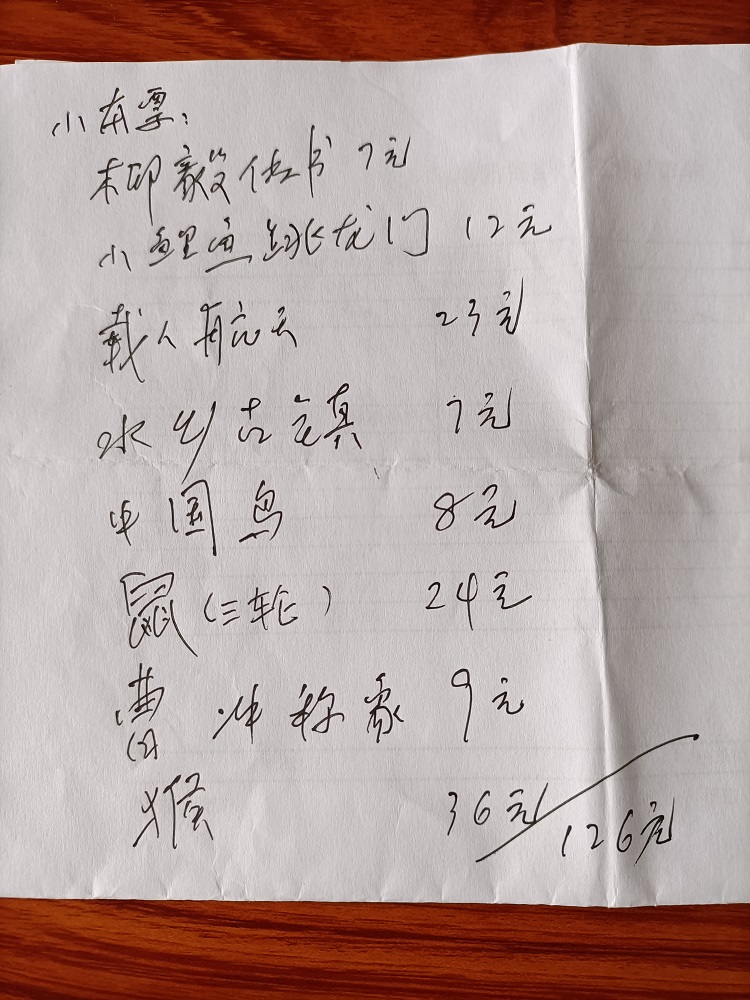 小本票：
柳毅传书 7元
小鲤鱼跳龙门 12元
载人航天 23元
水乡古镇 7元
中国鸟 8元
鼠（三轮） 24元
曹冲称象 9元
猴 36元
126元